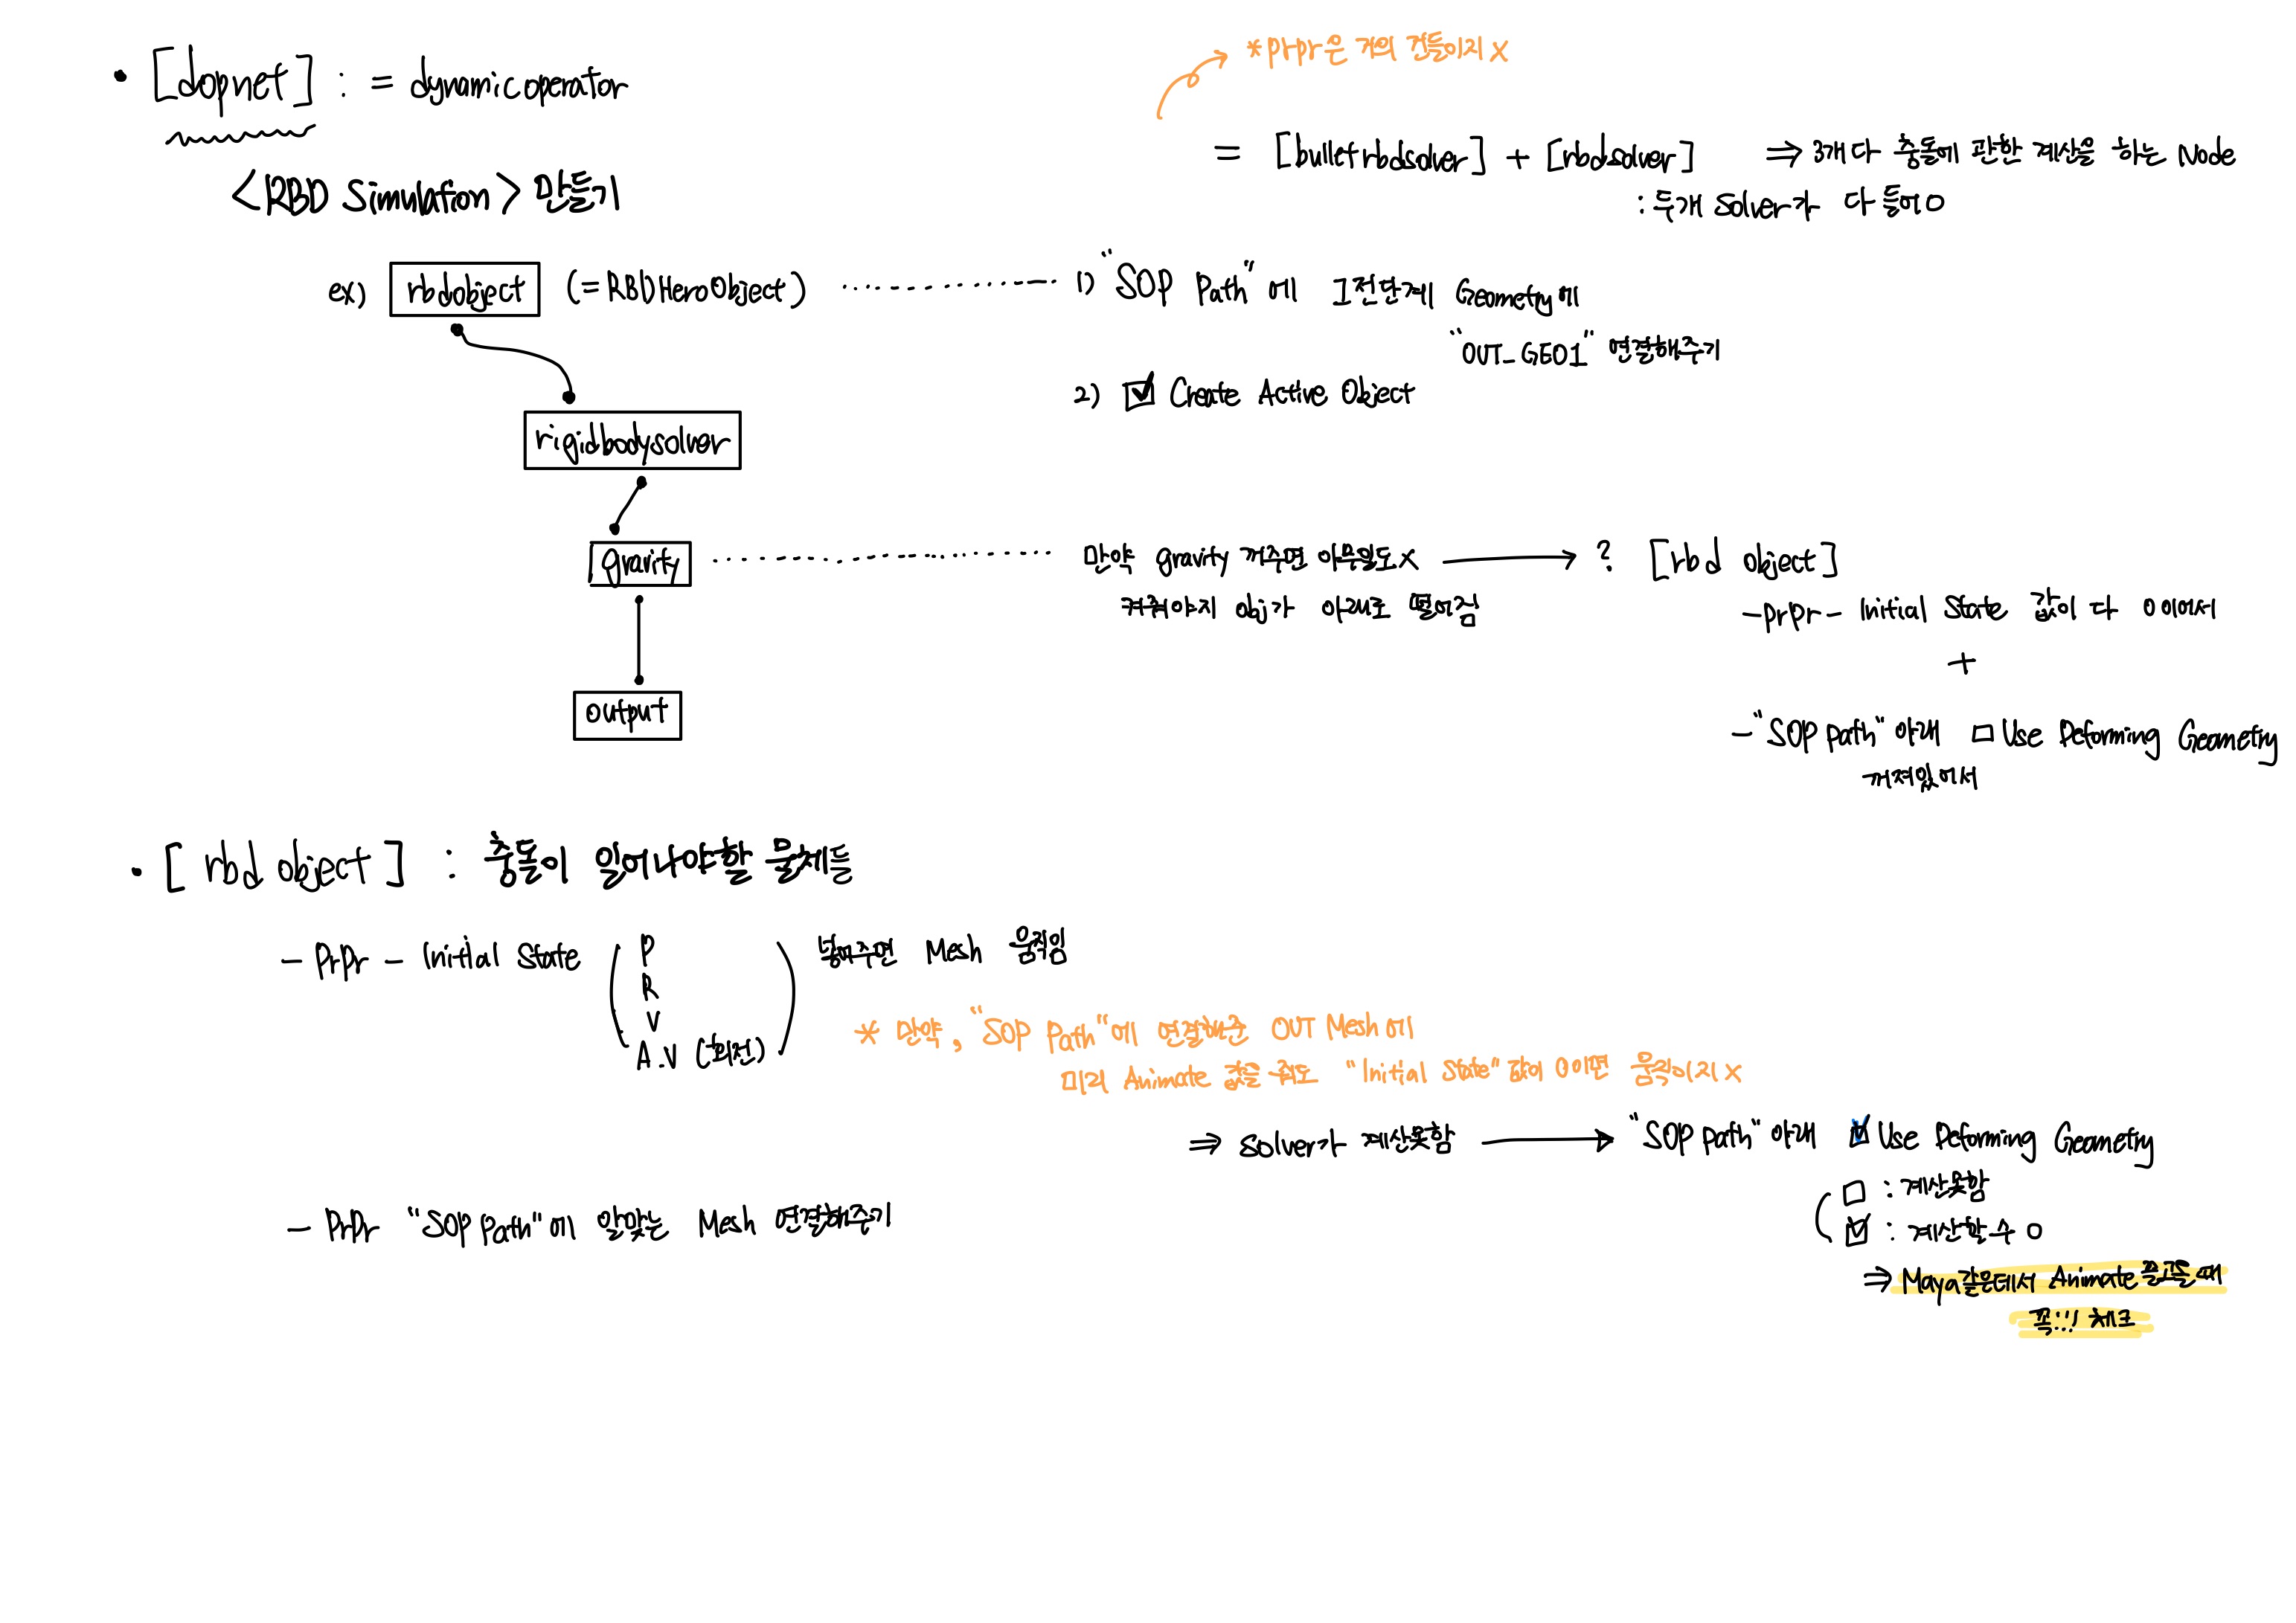 • [dopnet] : = dynamicoperator
<RBD Simulation> 만들기
*prpr은 거의 건들이지 x
= [bulletrbdsolver] + [rbdsolver] ⇒ 3개 다 충돌에 관한 계산을 하는 Node
: 두개 solver가 다 들어O
ex) rbdobject (=RBDHeroObject) 1) "SOP Path"에 그전단계 Geometry에
"OUT_GEO1" 연결해주기
2) ☑ Create Active Object
rigidbodysolver
gravity 만약 gravity 꺼주면 아무일도x → ? [rbd object]
켜줘야지 obj가 아래로 떨어짐
- prpr - Initial State 값이 다 0이어서
+
- "SOP path" 아래 □ Use Deforming Geometry
꺼져있어서
output
• [rbd object] : 충돌이 일어나야할 물체들
- Prpr - Initial State ( P R V A.V (회전) ) 넣어주면 Mesh 움직임
* 만약, "SOP Path"에 연결해준 OUT Mesh에
미리 Animate 값들 줘도 "Initial State"값이 0이면 움직이지x
⇒ Solver가 계산못함 → "SOP path" 아래 ☑ Use Deforming Geometry
□ : 계산못함
☑ : 계산할수 O
⇒ Maya같은데서 Animate 들고올때
꼭!!! 체크
- Prpr "SOP Path"에 알맞는 Mesh 연결해주기